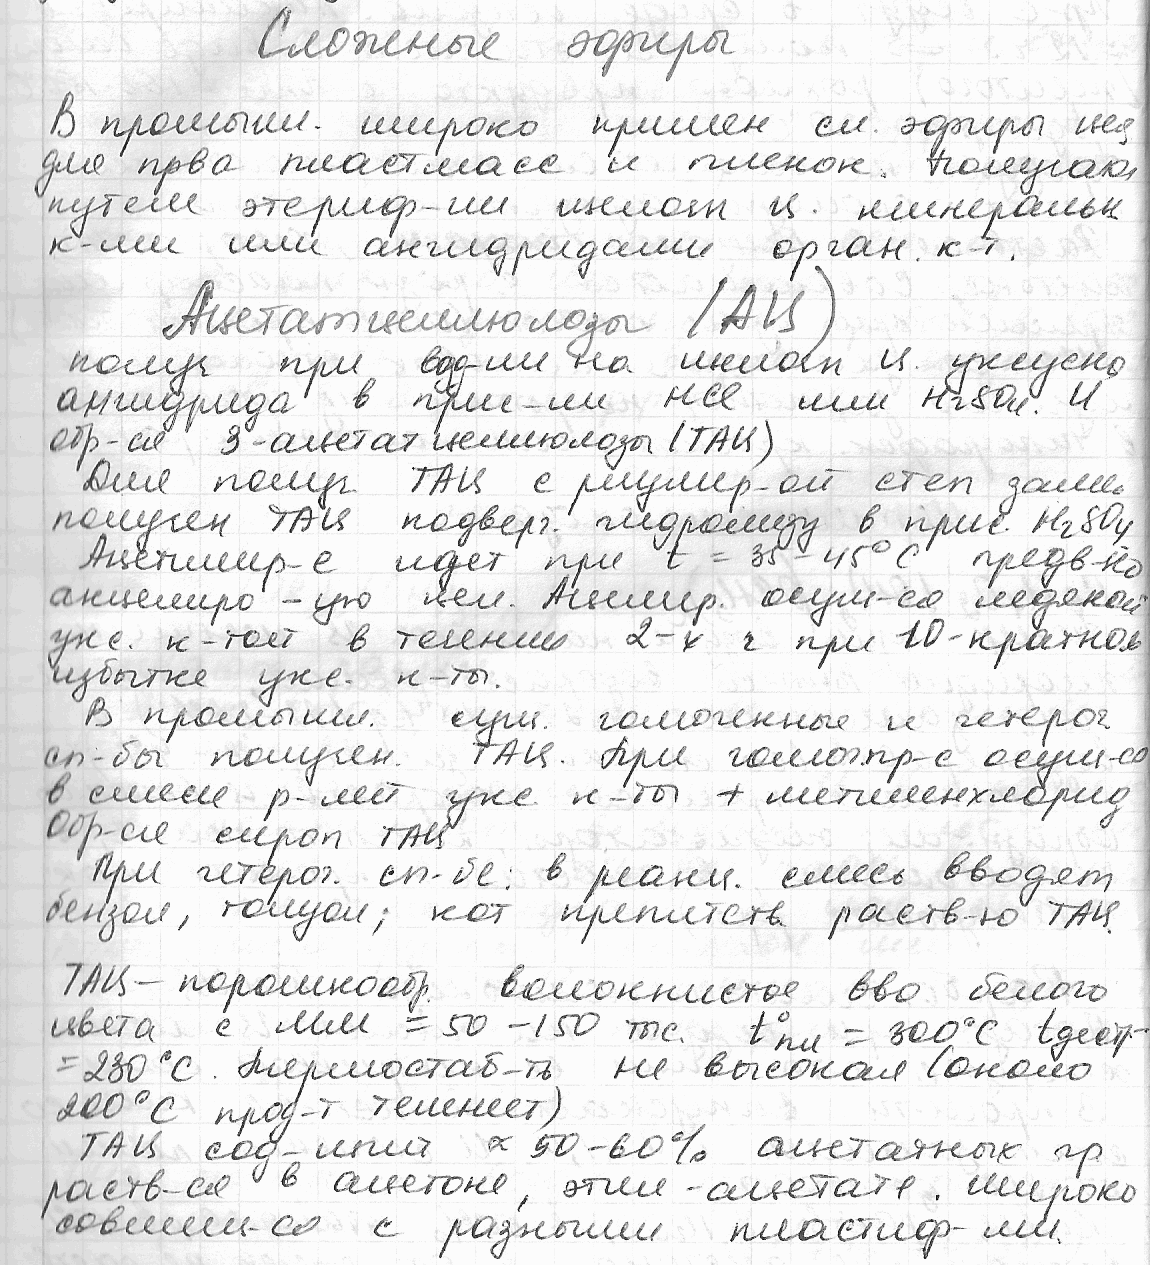 Сложные эфиры
В промышл. широко примен сл. эфиры цел
для прва пластмасс и пленок. Получают
путем этериф-ии щелоч ц. минеральн
к-ми или ангидридами орган. к-т.
Ацетатцеллюлозы (АЦ)
получ при возд-ии на щелоч ц. уксусно
ангидрида в прис-ии HCl или H₂SO₄. И
обр-ся 3-ацетат целлюлозы (ТАЦ)
Для получ ТАЦ с регулир-ой степ замещ
получен ТАЦ подверг. гидролизу в прис. H₂SO₄
Ацетилир-е идет при t = 35-45°С предв-но
ацилиро-ую цел. Ацилир. осущ-ся ледяной
укс. к-той в течении 2-х ч при 10-кратном
избытке укс. к-ты.
В промышл. сущ. гомогенные и гетерог.
сп-бы получен. ТАЦ. При гомог.пр-с осущ-ся
в смеси р-лей укс к-ты + метиленхлорид
Обр-ся сироп ТАЦ
При гетерог. сп-бе: в реакц. смесь вводят
бензол, толуол; кот препятств. раств-ю ТАЦ.
ТАЦ - порошкообр. волокнистое вво белого
цвета с ММ = 50-150 тыс. t°пл = 300°С tдестр-
=230°С. Термостаб-ть не высокая (около
200°С прод-т темнеет)
ТАЦ сод-щий ∝ 50-60% ацетатных гр
раств-ся в ацетоне, этил-ацетате. Широко
совмещ-ся с разными пластиф-ми.